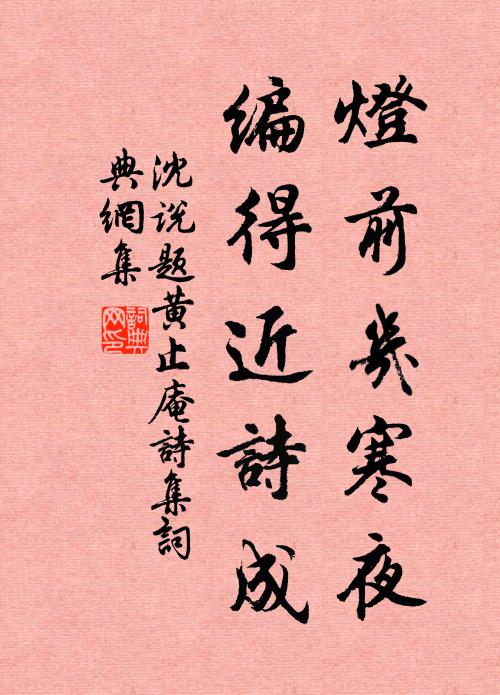 燈前幾寒夜
編得近詩成
沈説題黄止庵詩集詞
典網集
詞典网印